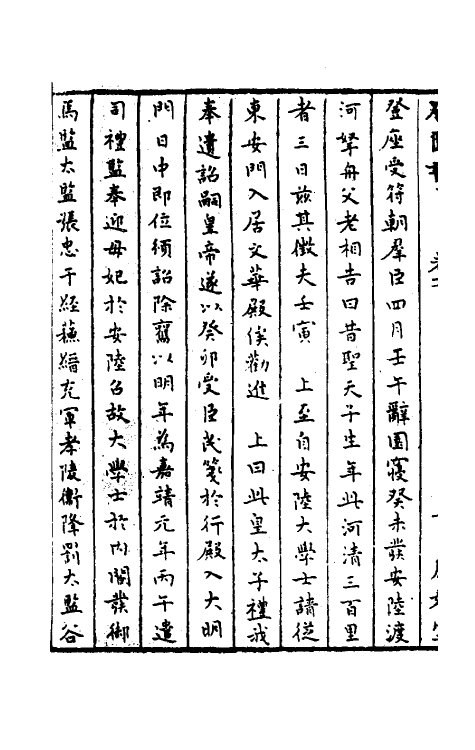 登座受符朝羣臣四月壬午辭園寢癸未發安陸渡
河拏舟父老相告曰昔聖天子生年此河清三百里
者三日玆其徵夫壬寅　上至自安陸大學士請從
東安門入居文華殿俟勸進　上曰此皇太子禮我
奉遺詔嗣皇帝遂以癸卯受臣民箋於行殿入大明
門日中即位頒詔除舊以明年爲嘉靖元年丙午遣
司禮監奉迎母妃於安陸召故大學士於內閣發御
馬監太監張忠于經蘓縉充軍孝陵衛降罰太監谷